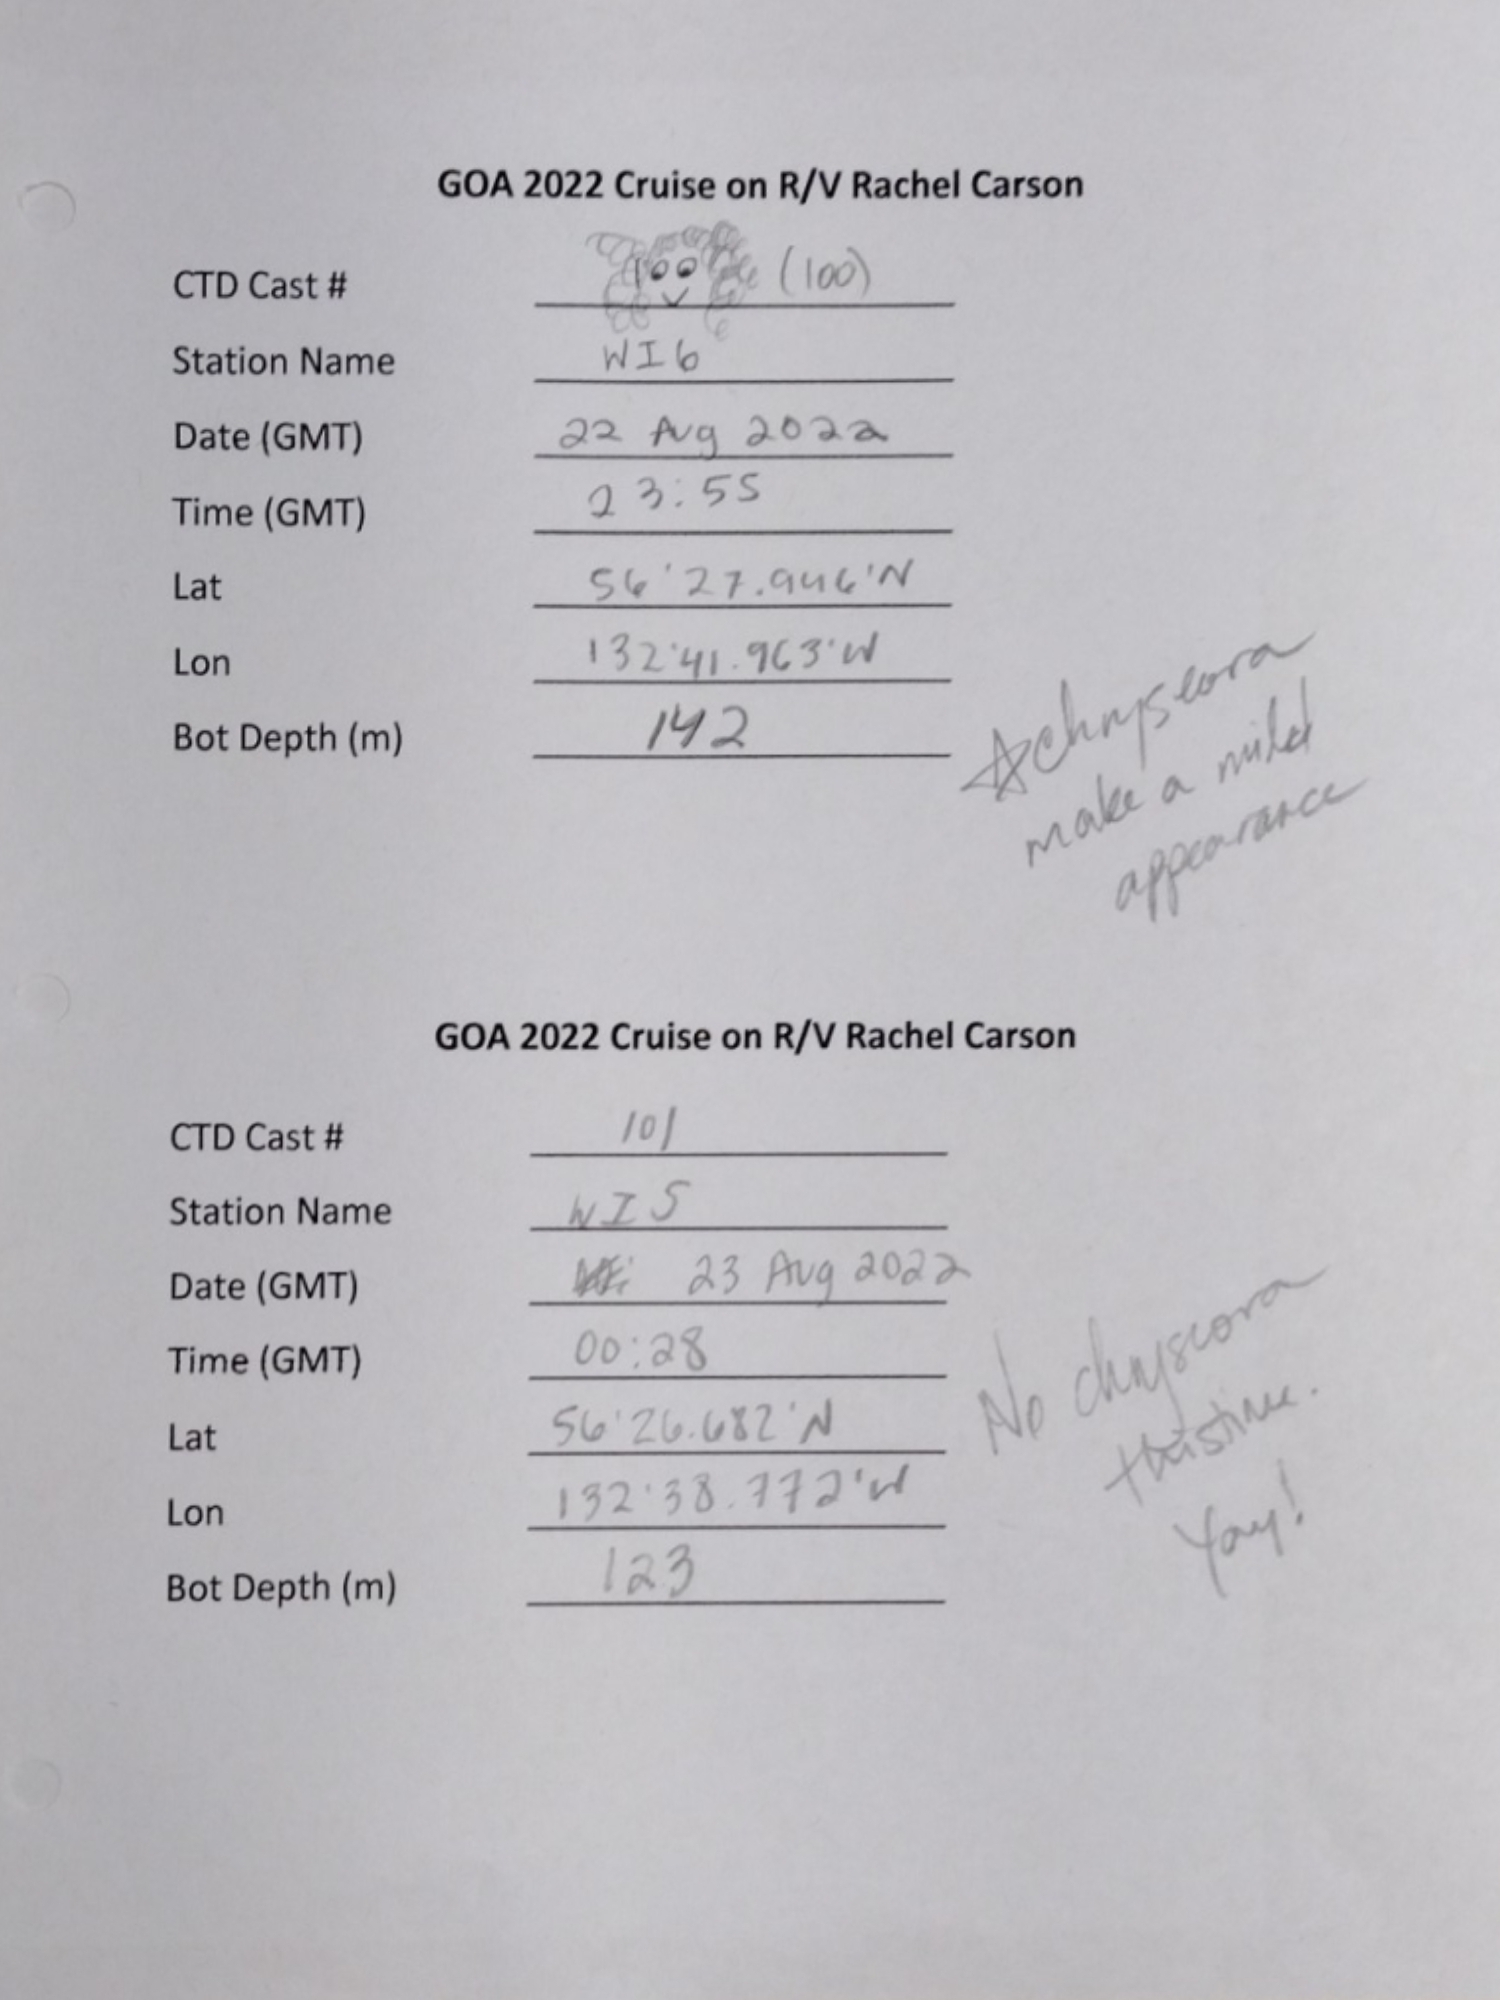 GOA 2022 Cruise on R/V Rachel Carson
CTD Cast # 100 (100)
Station Name WI6
Date (GMT) 22 Aug 2022
Time (GMT) 23:55
Lat 56°27.946'N
Lon 132°41.963'W
Bot Depth (m) 142
☆chryseora
make a mild
appearance
GOA 2022 Cruise on R/V Rachel Carson
CTD Cast # 101
Station Name WI5
Date (GMT) 23 Aug 2022
Time (GMT) 00:28
Lat 56°26.682'N
Lon 132°38.772'W
Bot Depth (m) 123
No chryseora
this time.
Yay!